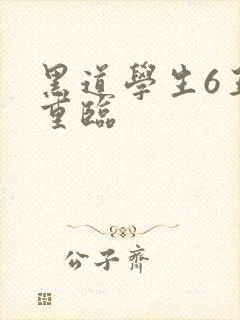 黑道學生6
重臨
公子齊